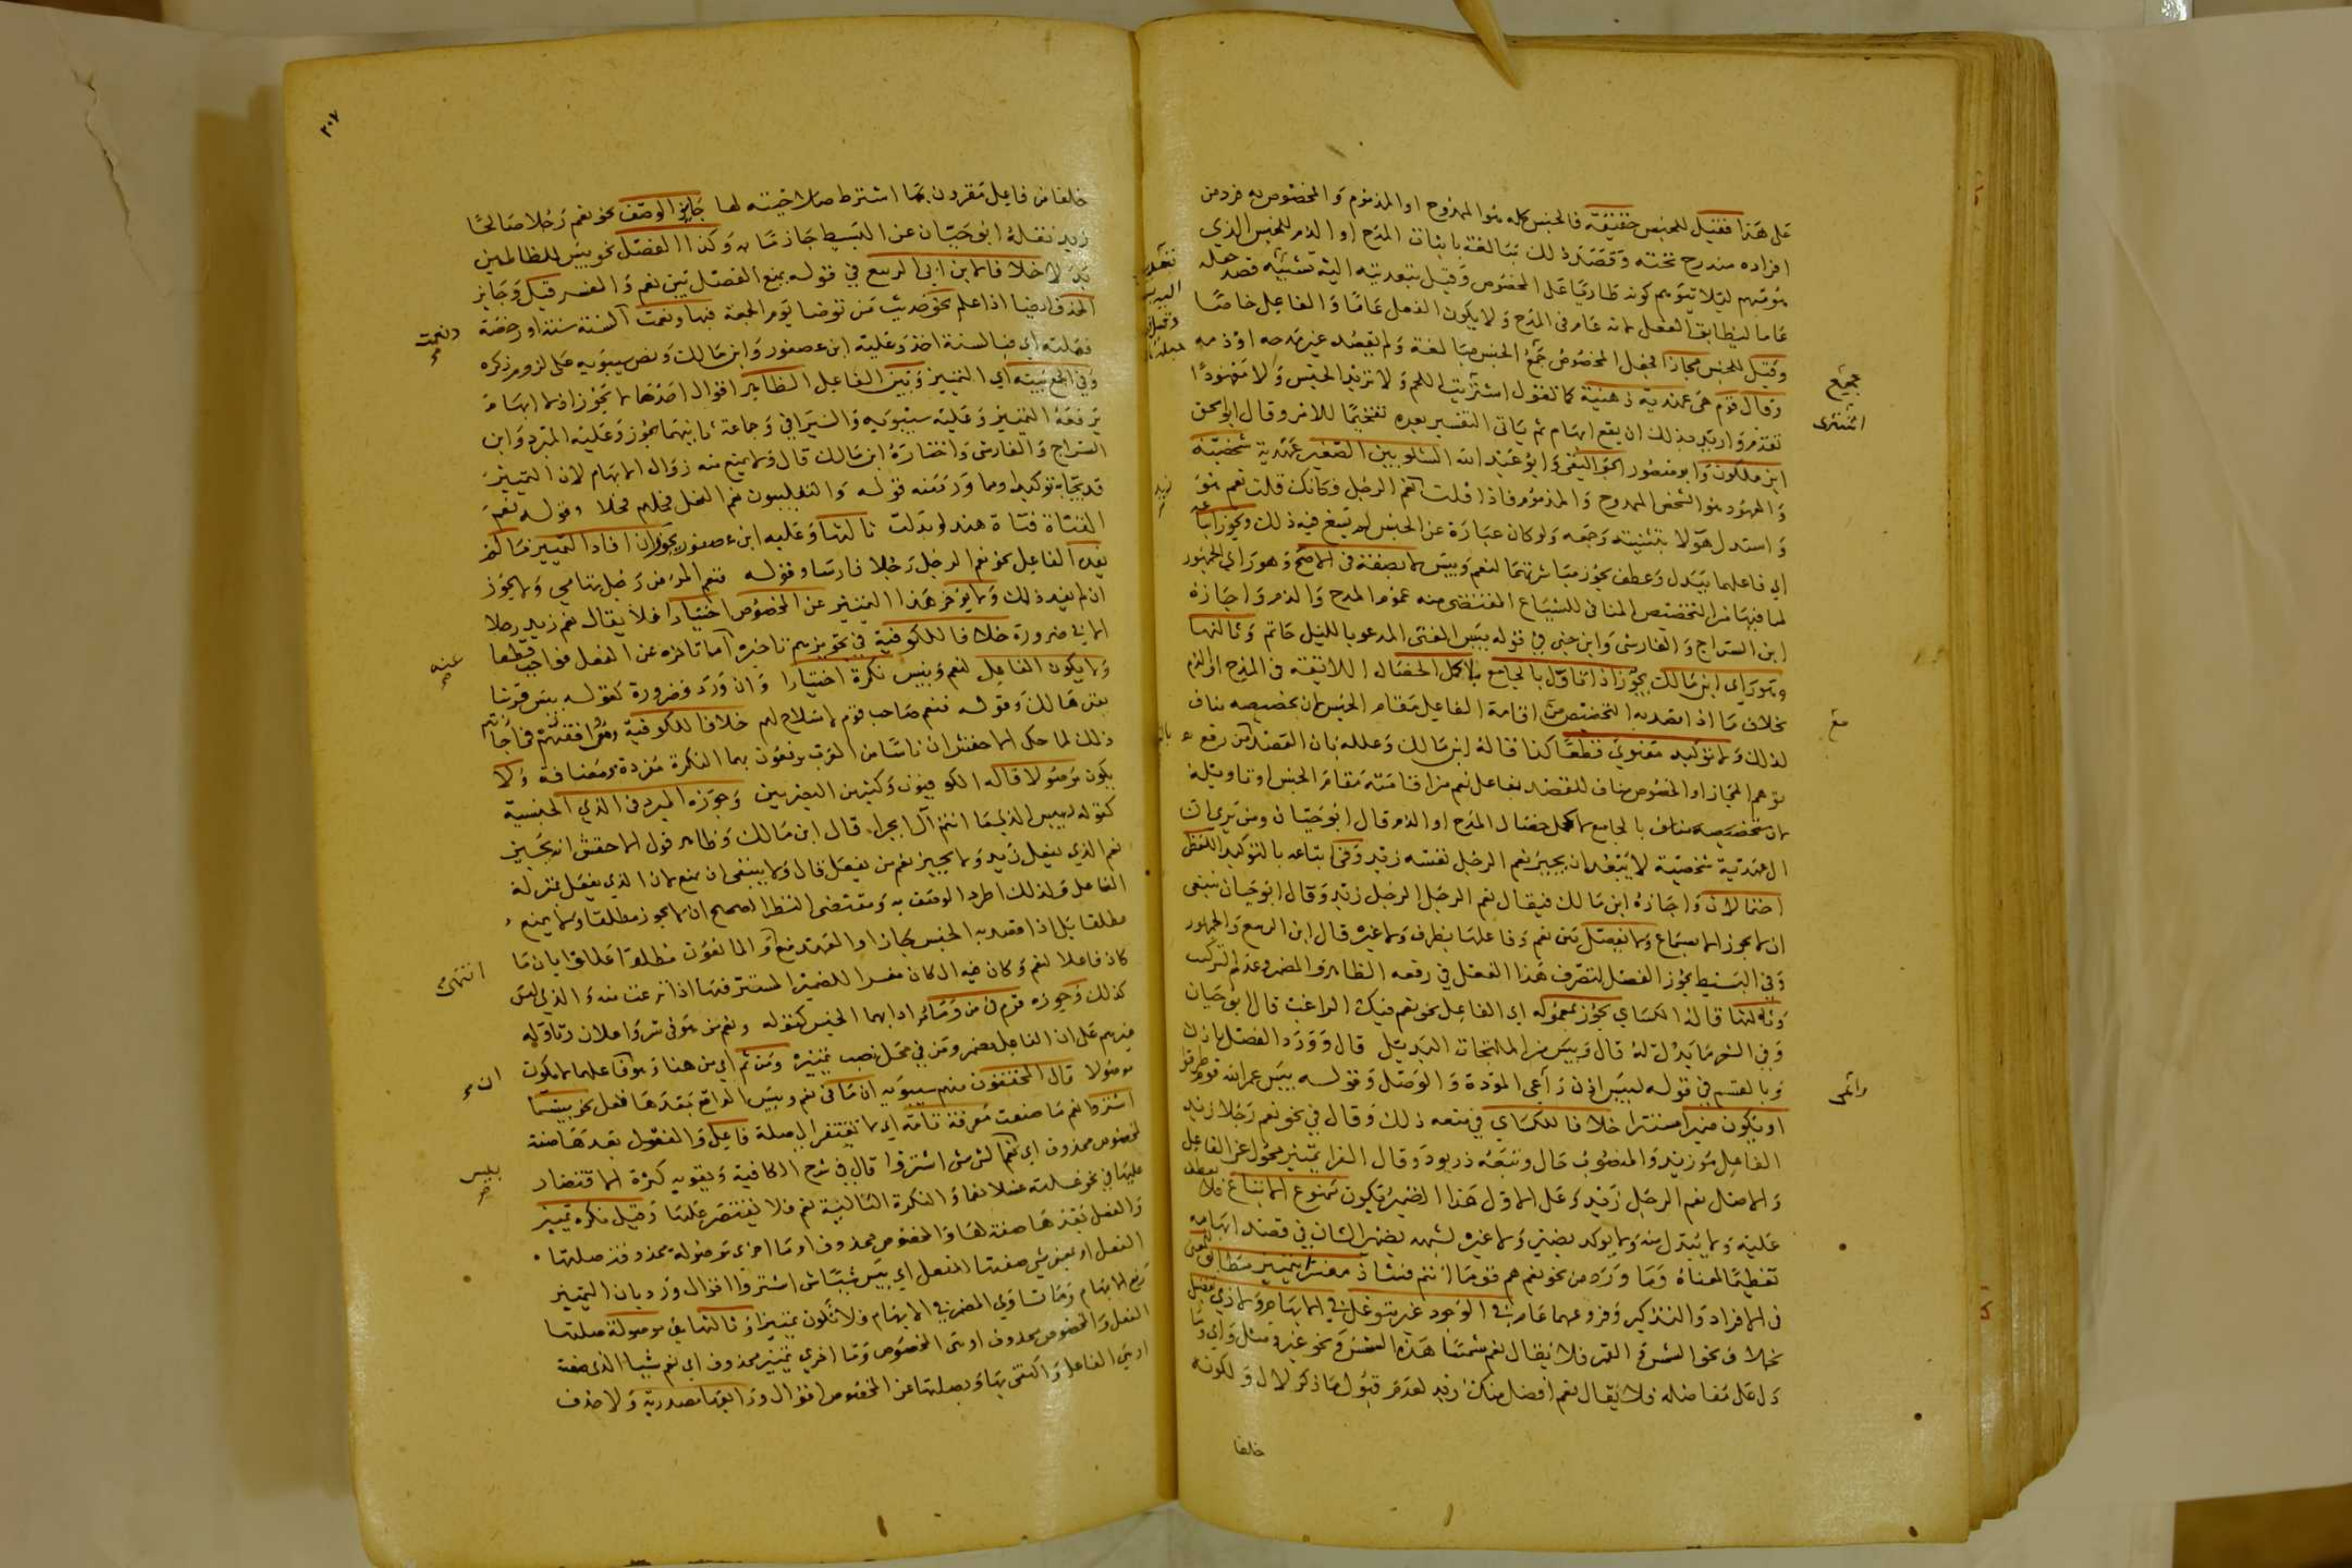 على هذا فقيل للجنس حقيقة فالجنس كله هو الممدوح او المذموم والمخصوص به فرد من
افراده مندرج تحته وقصد ذلك مبالغة باثبات المدح او الذم للجنس الذي
لئلا يتوهم كونه طاريا على المخصوص وقيل تعديته اليه بسببه قصد جعله
عاما ليطابق الفعل لانه عام في المدح ولا يكون الفعل عاما والفاعل خاصا
وقيل للجنس مجازا فجعل المخصوص جميع الجنس مبالغة ولم يقصد غير مدحه او ذمه
وقال قوم هي عهدية ذهنية كما تقول اشتريت اللحم ولا تريد الجنس ولا معهودا
تقدم واريد بذلك ان يقع ابهام ثم ياتي التفسير بعده تفخيما للامر وقال ابو اسحق
ابن ملكون وابو منصور الجواليقي وابو عبد الله الشلوبين الصغير عهدية شخصية
والمعهود هو الشخص الممدوح والمذموم فاذا قلت نعم الرجل فكانك قلت نعم هو
واستدل هولا بتثنيته وجمعه ولو كان عبارة عن الجنس لم يسغ فيه ذلك ويجوز اتباعه
اي فاعلهما ببدل وعطف يجوز مباشرتهما لنعم وبيس لا بصفة في الاصح وهو راي الجمهور
لما فيها من التخصيص المنافي للشياع المقتضى منه عموم المدح والذم واجازه
ابن السراج والفارسي وابن جني في قوله بيس الفتى المدعو بالليل حاتم وثالثها
وهو راي ابن مالك يجوز اذا تؤول بالجامع لاكمل الخصال اللائقة في المدح او الذم
بخلاف ما اذا قصد به التخصيص مع اقامة الفاعل مقام الجنس لان تخصيصه مناف
لذلك ولا توكيد معنوي قطعا كذا قاله ابن مالك وعلله بان القصد من رفع
توهم المجاز او الخصوص مناف للقصد بفاعل نعم من اقامته مقام الجنس او تاويله
لان تخصيصه مناف بالجامع لاكمل خصال المدح او الذم قال ابو حيان ومن يرى ان
ال عهدية شخصية لا يبعد ان يجيز نعم الرجل نفسه زيد وفي اتباعه بالتوكيد اللفظي
احتمالان واجازه ابن مالك فيقال نعم الرجل الرجل زيد وقال ابو حيان ينبغي
ان لا يجوز الا بسماع ولا يفصل بين نعم وفاعلها بظرف ولا غيره قال ابن الربيع والجمهور
وفي البسيط يجوز الفصل لتصرف هذا الفعل في رفعه الظاهر والمضمر وعدم التركيب
وثالثها قاله الكساي يجوز بمعموله اي الفاعل نحو نعم فيك الراغب قال ابو حيان
وفي الشعر ما يدل له قال وبيس من المليحات البديل قال وورد الفصل باذن
وبالقسم في قوله لبيس اذن راعي المودة والوصل وقوله بيس عمر الله قوم طرقوا
او يكون ضميرا مستترا خلافا للكساي في منعه ذلك وقال في نحو نعم رجلا زيد
الفاعل هو زيد والمنصوب حال وتبعه دريود وقال الفرا تمييز محول عن الفاعل
والاصل نعم الرجل زيد وعلى الاول هذا الضمير يكون ممنوع الاتباع فلا يعطف
عليه ولا يبدل منه ولا يوكد بضمير ولا غيره لشبهه بضمير الشان في قصد ابهامه
تعظيما لمعناه وما ورد من نحو نعم هم قوما انتم فشاذ مفسرا بتمييز مطابق للمعنى
في الافراد والتذكير وفروعهما عام في الوجود غير متوغل في الابهام ولا ذي تفضيل
بخلاف نحو الشمس القمر فلا يقال نعم شمسا هذه الشمس ونحو غير ومثل واي وما
دل على مفاضلة فلا يقال نعم افضل منك زيد لعدم قبول ما ذكر لال ولكونه
خلفا
جميع
انتهى
مع
واتمر
٢٠٧
خلفا من فاعل مقرون بها اشترط صلاحيته لها جايز الوصف نحو نعم رجلا صالحا
زيد نقله ابو حيان عن البسيط جازما به وكذا الفصل نحو بيس للظالمين
بدلا خلافا لابن ابي الربيع في قوله بمنع الفصل بين نعم والمفسر قيل وجايز
الحذف ايضا اذا علم نحو حديث من توضا يوم الجمعة فبها ونعمت
وفي الجمع بينه اي التمييز وبين الفاعل الظاهر اقوال احدها لا يجوز اذ لا ابهام
يرفعه التمييز وعليه سيبويه والسيرافي وجماعة ثانيها يجوز وعليه المبرد وابن
السراج والفارسي واختاره ابن مالك قال ولا يمنع منه زوال الابهام لان التمييز
قد يجا به توكيدا ومما ورد منه قوله والتغلبيون نعم الفحل فحلهم فحلا وقوله نعم
الفتاة فتاة هند لو بذلت ثالثها وعليه ابن عصفور يجوز ان افاد التمييز ما لم
يفده الفاعل نحو نعم الرجل رجلا فارسا وقوله فنعم المرء من رجل تهامي ولا يجوز
ان لم يفد ذلك ولا يؤخر هذا التمييز عن المخصوص اختيارا فلا يقال نعم زيد رجلا
الا في ضرورة خلافا للكوفية في تجويزهم تاخيره اما تاخره عن الفعل فواجب قطعا
ولا يكون الفاعل لنعم وبيس نكرة اختيارا وان ورد فضرورة كقوله بيس قرينا
يفن هالك وقوله فنعم صاحب قوم لا سلاح لهم خلافا للكوفية وموافقتهم في اجازتهم
ذلك لما حكى الاخفش ان ناسا من العرب يرفعون بهما النكرة مفردة ومضافة ولا
يكون موصولا قاله الكوفيون وكثير من البصريين وجوزه المبرد في الذي الجنسية
كقوله لبيس الذي ما انتم آل ابجرا قال ابن مالك وظاهر قول الاخفش انه يجيز
نعم الذي يفعل زيد ولا يجيز نعم من يفعل قال ولا ينبغي ان يمنع لان الذي يفعل بمنزلة
الفاعل ولذلك اطرد الوصف به ومقتضى النظر الصحيح ان لا يجوز مطلقا ولا يمنع
مطلقا بل اذا قصد به الجنس جاز او العهد منع والمانعون مطلقا عللوا بان ما
كان فاعلا لنعم وكان فيه ال كان مفسرا للضمير المستتر فيها اذا نزعت منه والذي ليس
كذلك وجوزه قوم في من وما مرادا بهما الجنس كقوله ونعم من هو في سر واعلان وتاوله
غيرهم على ان الفاعل مضمر ومن في محل نصب تمييزه ومن ثم اي من هنا وهو فاعلهما لا يكون
موصولا قال المحققون منهم سيبويه ان ما في نعم وبيس الواقع بعدها فعل نحو بيسما
اشتروا نعم ما صنعت معرفة تامة اي لا تفتقر الى صلة فاعل والفعل بعدها صفة
لمخصوص محذوف اي نعم الشي شي اشتروا قال في شرح الكافية ويقويه كثرة الاقتصار
عليها في نحو غسلته غسلا نعما والنكرة التالية نعم فلا يقتصر عليها وقيل نكرة تمييز
والفعل بعدها صفة لها والمخصوص محذوف او ما اخرى موصولة محذوفة صلتها
الفعل او بمعنى شي صفتها الفعل اي بيس شيئا شي اشتروا اقوال ورد بان التمييز
يرفع الابهام وما تساوي المضمر في الابهام فلا تكون تمييزا وثالثها هي موصولة صلتها
الفعل والمخصوص محذوف او هي المخصوص وما اخرى تمييز محذوف اي نعم شيئا الذي صنعته
او هي الفاعل واكتفى بها وبصلتها عن المخصوص اقوال ورابعها مصدرية ولا حذف
ونعمت
عنه
انتهى
بيس